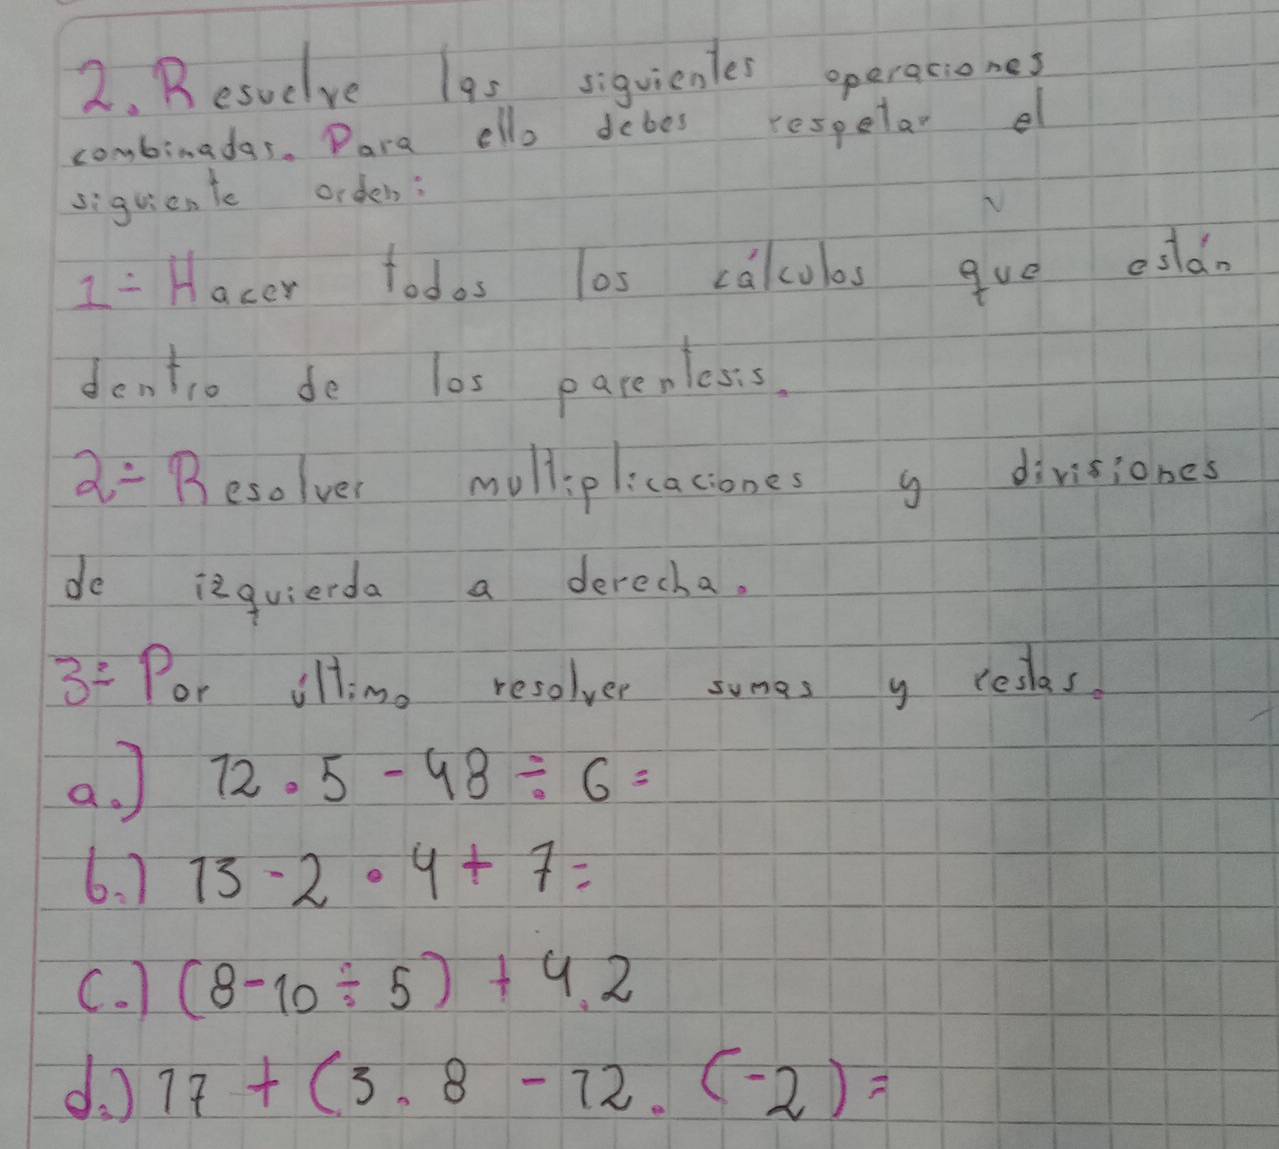 2. Resuelve las siguientes operaciones
combinadas. Para ello debes respetar el
siguiente orden:
1÷ Hacer todos los cálculos que están
dentro de los parentesis.
2÷ Resolver multiplicaciones y divisiones
de izquierda a derecha.
3÷ Por último resolver sumas y restas.
a.) 12 . 5 - 48 ÷ 6 =
b.) 13 - 2 . 4 + 7 =
c.) (8 - 10 ÷ 5) + 4 . 2
d.) 17 + (3 . 8 - 12 . (-2) =